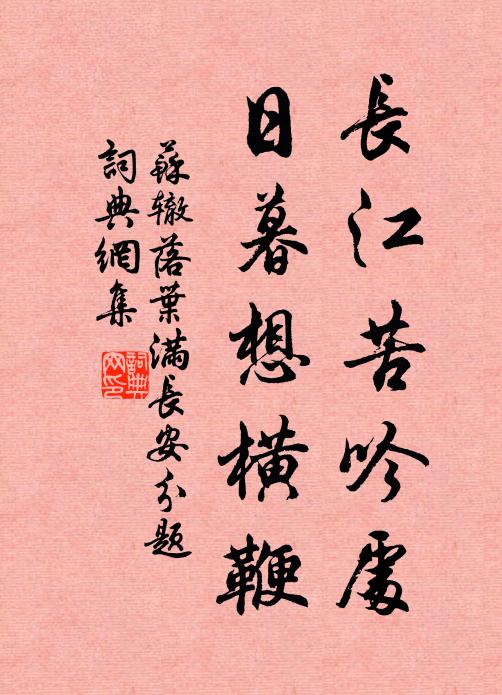 長江苦吟處
日暮想橫鞭
蘇轍落葉滿長安分題
詞典網集
詞典
网印